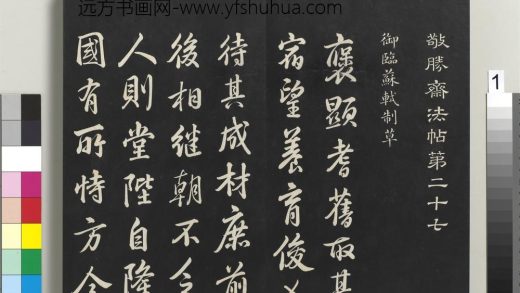 远方书画网-www.yfshuhua.com
敬勝齋法帖第二十七
御臨蘇軾制草
褒顯耆舊取其
宿望養育俊
待其成材庶前
後相繼朝不
人則堂陛自隆
國有所恃方今
1